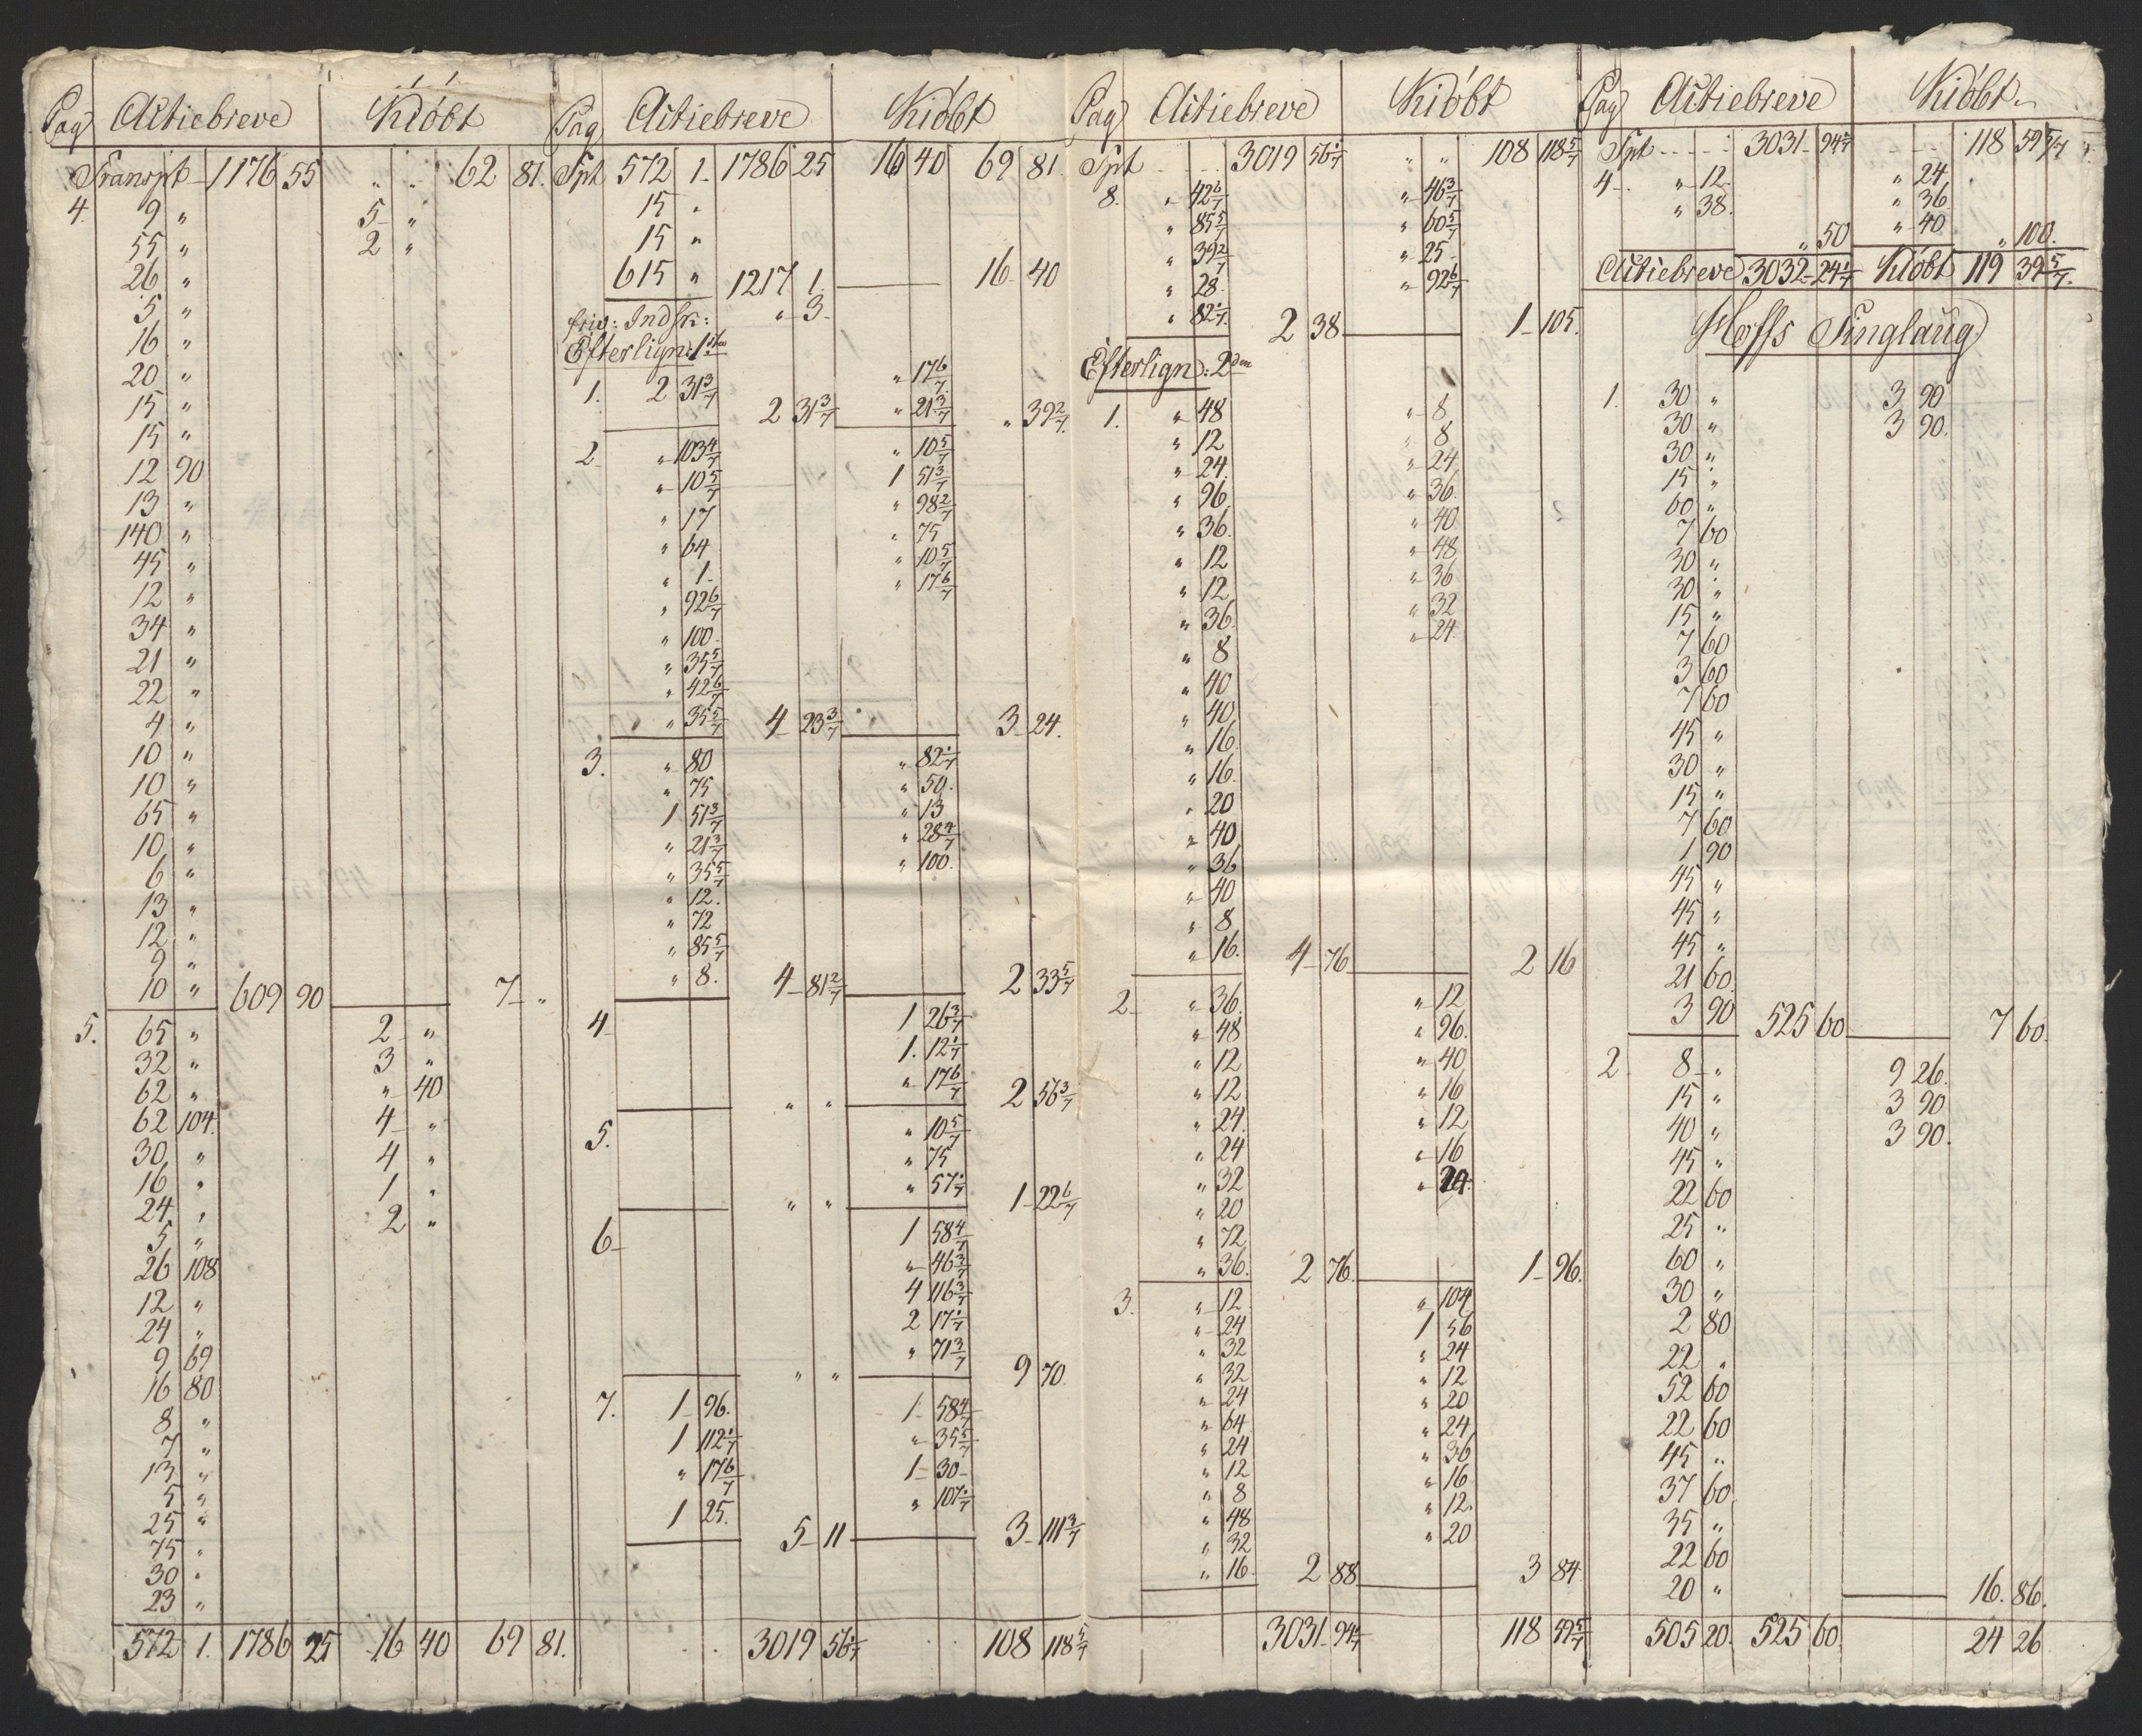 Pag Actiebreve Kiöbt
Transpt 1176 55 " " 62 81.
4. 9 " 5 "
55 " 2 "
26 "
5 "
16 "
20 "
15 "
15 "
12 90
13 "
140 "
45 "
12 "
34 "
21 "
22 "
4 "
10 "
10 "
65 "
10 "
6 "
13 "
12 "
9 "
10 " 609 90 7 "
5. 65 " 2 "
32 " 3 "
62 " " 40
62 104. 4 "
30 " 4 "
16 " 1 "
24 " 2 "
5 "
26 108
12 "
24 "
9 69
16 80
8 "
7 "
13 "
5 "
25 "
75 "
30 "
23 "
572 1. 1786 25 16 40 69 81.
Pag Actiebreve Kiöbt
Tpt 572 1 1786 25 16 40 69 81.
15 "
15 "
615 " 1217 1. 16 40
friv: Indsk: " 3
Efterlign: 1ste
1. 2 31 3/7 " 17 6/7
2 31 3/7 " 21 3/7 " 39 2/7
2 " 103 4/7 " 10 5/7
" 10 5/7 1 51 3/7
" 17 " 98 2/7
" 64 " 75
" 1 " 10 5/7
" 92 6/7 " 17 6/7
" 100
" 35 5/7
" 42 6/7
" 35 5/7 4 23 3/7 3 24.
3. " 80 " 82 1/7
" 75 " 50.
1 51 3/7 " 13
" 21 3/7 " 28 4/7
" 35 5/7 " 100.
" 12.
" 72
" 85 5/7
" 8. 4 81 2/7 2 33 5/7
4 1 26 3/7
1. 12 1/7
" 17 6/7
" " 2 56 3/7
5. " 10 5/7
" 75
" 57 1/7
" " 1 22 6/7
6 1 58 4/7
" 46 3/7
4 116 3/7
2 17 1/7
" 71 3/7
" " 9 70.
7. 1 96. 1 58 4/7
1 112 1/7 " 35 5/7
" 17 6/7 1 30
1 25. " 107 1/7
5 11 3 111 3/7
3019 56 1/7 108 118 5/7
Pag Actiebreve Kiöbt
Tpt 3019 56 1/7 " " 108 118 5/7
8. " 42 6/7 " 46 3/7
" 85 5/7 " 60 5/7
" 39 2/7 " 25
" 28. " 92 6/7
" 82 1/7 2 38 1 105.
Efterlign: 2den
1. " 48 " 8
" 12 " 8
" 24. " 24
" 96. " 36.
" 36. " 40
" 12 " 48
" 12 " 36
" 36. " 32
" 8 " 24.
" 40
" 40
" 16
" 16.
" 20
" 40
" 36
" 40
" 8
" 16. 4 76 2 16
2 " 36. " 12
" 48 " 96.
" 12 " 40
" 12. " 16
" 24. " 12
" 24 " 16
" 32 " 24.
" 20
" 72
" 36. 2 76. 1 96.
3. " 12. " 104
" 24 1 56
" 32 " 24
" 32 " 12
" 24 " 20
" 64 " 24
" 24 " 36
" 12 " 16
" 8 " 12.
" 48 " 20
" 32
" 16 2 88 3 84.
3031 94 1/7 118 59 5/7
Pag Actiebreve Kiöbt
Tpt 3031 94 1/7 118 59 5/7
4 " 12 " 24
" 38. " 36
" 50 " 40 " 100.
Actiebreve 3032 24 1/7 Kiöbt 119 39 5/7
Hoffs Tinglaug
1. 30 " 3 90
30 " 3 90.
30 "
15 "
60 "
7 60
30 "
30 "
15 "
7 60
3 60
7 60
45 "
30 "
15 "
7 60
1 90
45 "
45 "
45 "
21 60
3 90 525 60 7 60.
2 8 " 9 26.
15 " 3 90
40 " 3 90.
45 "
22 60
25 "
60 "
30 "
2 80
22 "
52 60
22 60
45 "
37 60
35 "
22 60
20 " 16. 86.
505 20. 525 60. 24 26